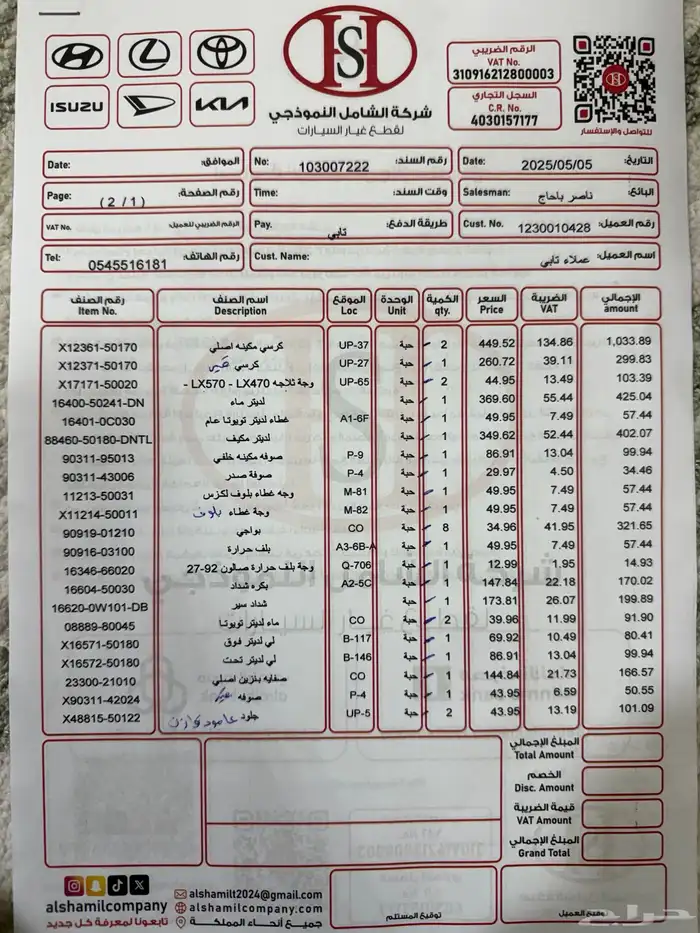 ISUZU
KIA
HS
شركة الشامل النموذجي
لقطع غيار السيارات
الرقم الضريبي
VAT No.
310916212800003
السجل التجاري
C.R. No.
4030157177
للتواصل والإستفسار
Date: الموافق:
No: 103007222 رقم السند:
Date: 2025/05/05 التاريخ:
Page: (2/1) رقم الصفحة:
Time: وقت السند:
Salesman: ناصر باحاج البائع:
VAT No. الرقم الضريبي للعميل:
Pay. تابي طريقة الدفع:
Cust. No. 1230010428 رقم العميل:
Tel: 0545516181 رقم الهاتف:
Cust. Name: عملاء تابي اسم العميل:
رقم الصنف اسم الصنف الموقع الوحدة الكمية السعر الضريبة الإجمالي
Item No. Description Loc Unit qty. Price VAT amount
X12361-50170 كرسي مكينه اصلي UP-37 حبة 2 449.52 134.86 1,033.89
X12371-50170 كرسي UP-27 حبة 1 260.72 39.11 299.83
X17171-50020 وجة ثلاجه LX570 - LX470 - UP-65 حبة 2 44.95 13.49 103.39
16400-50241-DN لديتر ماء حبة 1 369.60 55.44 425.04
16401-0C030 غطاء لديتر تويوتا عام A1-6F حبة 1 49.95 7.49 57.44
88460-50180-DNTL لديتر مكيف حبة 1 349.62 52.44 402.07
90311-95013 صوفه مكينه خلفي P-9 حبة 1 86.91 13.04 99.94
90311-43006 صوفة صدر P-4 حبة 1 29.97 4.50 34.46
11213-50031 وجه غطاء بلوف لكزس M-81 حبة 1 49.95 7.49 57.44
X11214-50011 وجة غطاء بلوف M-82 حبة 1 49.95 7.49 57.44
90919-01210 بواجي CO حبة 8 34.96 41.95 321.65
90916-03100 بلف حرارة A3-6B-A حبة 1 49.95 7.49 57.44
16346-66020 وجة بلف حرارة صالون 92-27 Q-706 حبة 1 12.99 1.95 14.93
16604-50030 بكره شداد A2-5C حبة 1 147.84 22.18 170.02
16620-0W101-DB شداد سير حبة 1 173.81 26.07 199.89
08889-80045 ماء لديتر تويوتا CO حبة 2 39.96 11.99 91.90
X16571-50180 لي لديتر فوق B-117 حبة 1 69.92 10.49 80.41
X16572-50180 لي لديتر تحت B-146 حبة 1 86.91 13.04 99.94
23300-21010 صفايه بنزين اصلي CO حبة 1 144.84 21.73 166.57
X90311-42024 صوفه P-4 حبة 1 43.95 6.59 50.55
X48815-50122 جلود عامود توازن UP-5 حبة 2 43.95 13.19 101.09
المبلغ الإجمالي
Total Amount
الخصم
Disc. Amount
قيمة الضريبة
VAT Amount
المبلغ الإجمالي
Grand Total
alshamilcompany
تابعونا لمعرفة كل جديد
alshamilt2024@gmail.com
alshamilcompany.com
جميع أنحاء المملكة
توقيع المستلم
توقيع العميل
حراج